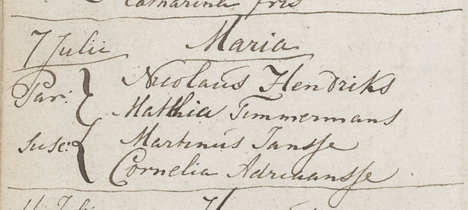 Catharina Fris
7 Julii Maria
Par: Nicolaus Hendriks
Matthia Timmermans
Susc: Martinus Jansse
Cornelia Adriaansse.